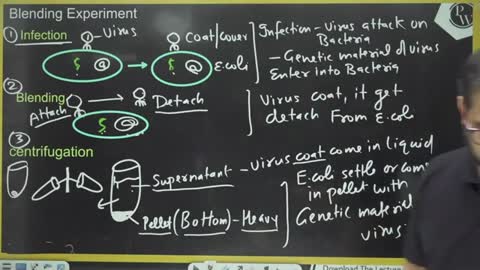 Blending Experiment
① Infection
Virus
Coat/cover
E.coli
Infection - Virus attack on
Bacteria
- Genetic material of virus
Enter into Bacteria
②
Blending
Attach
Detach
Virus coat, it get
detach From E.coli
③
centrifugation
Supernatant - Virus coat come in liquid
Pellet (Bottom) - Heavy
E.coli settle or com
in pellet with
Genetic material
virus
Download The Lecture